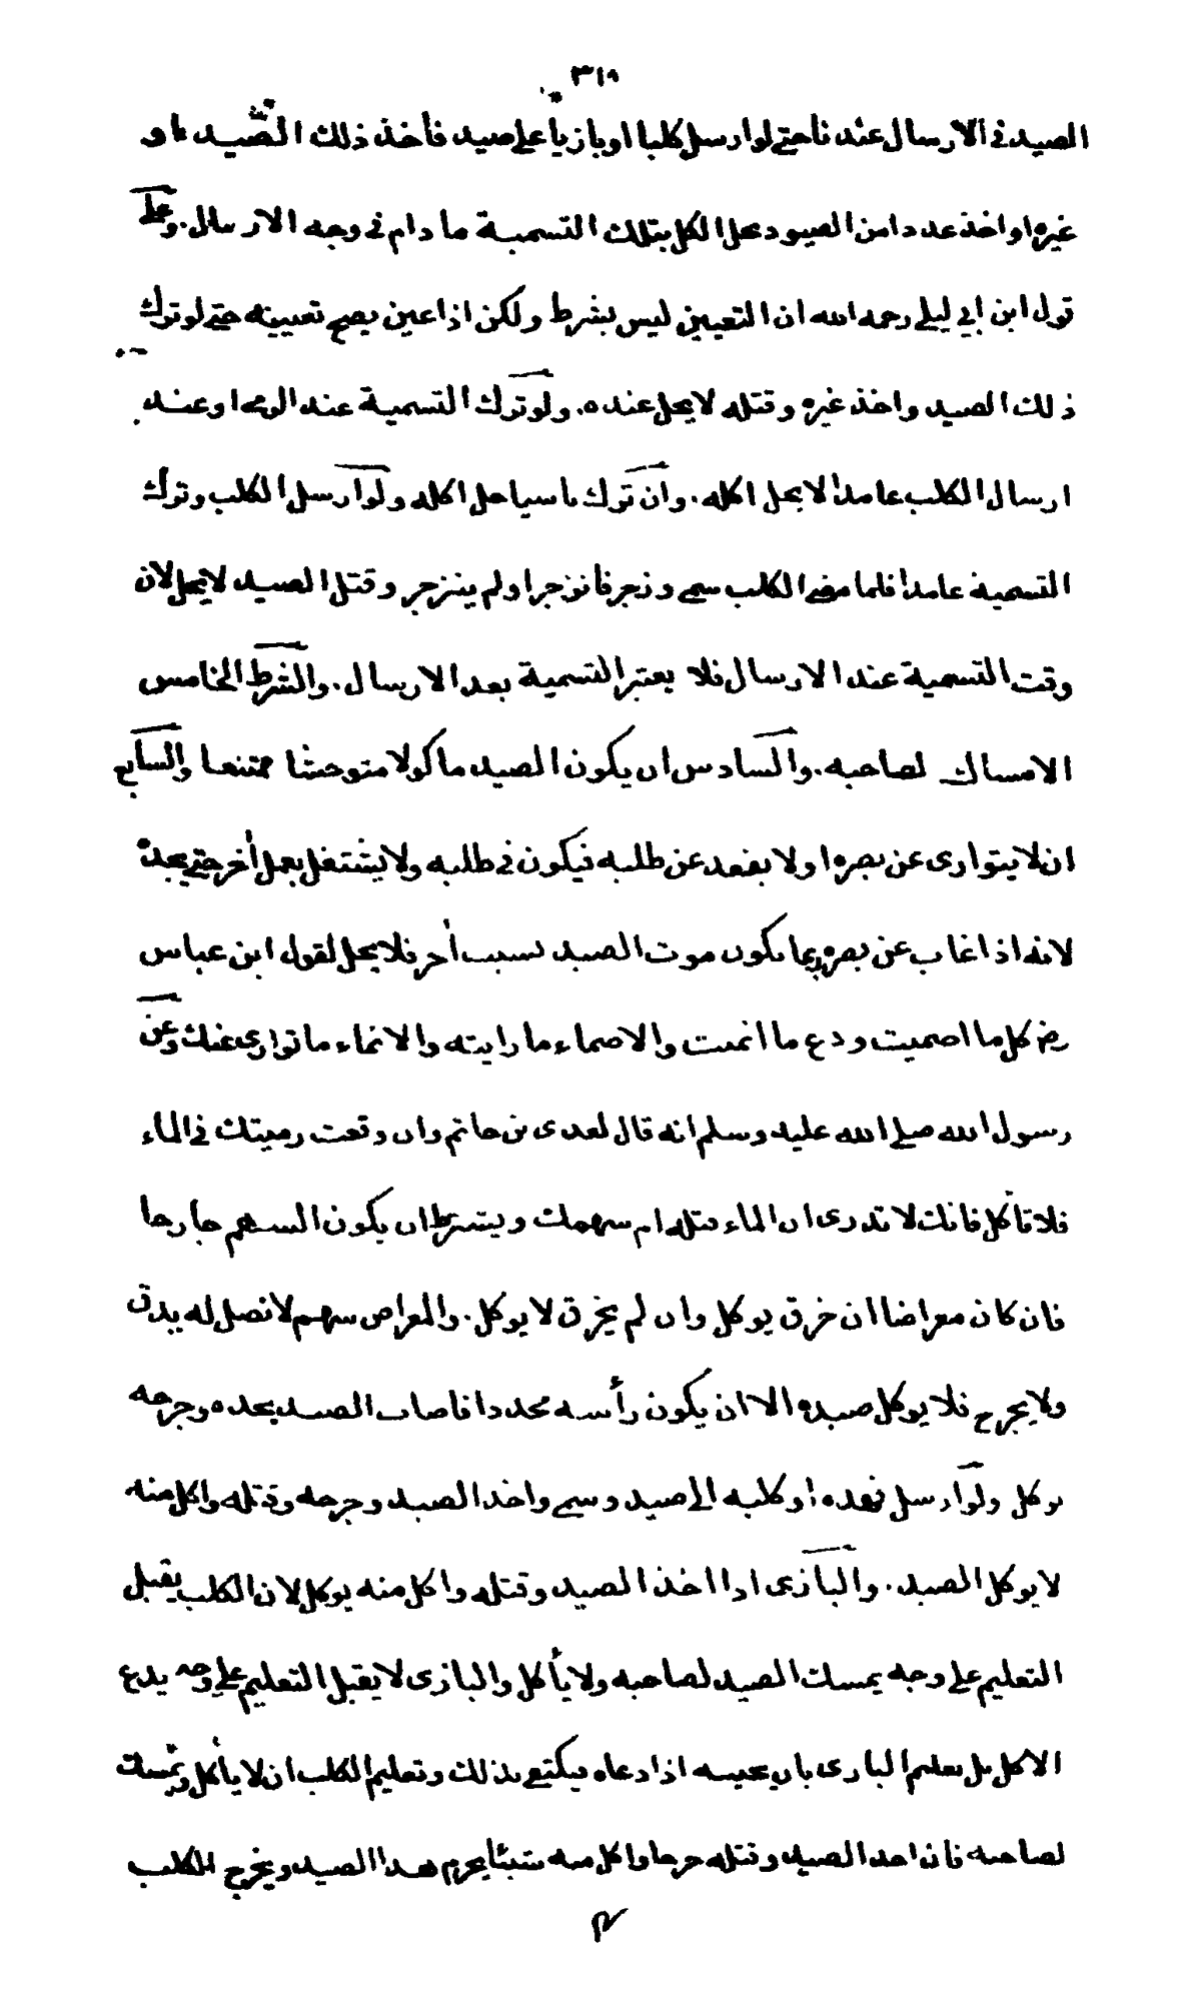 ٣١٨
الصيد في الارسال عندنا حتى لو ارسل كلبا او بازيا على صيد فاخذ ذلك الصيد او
غيره او اخذ عددا من الصيود يحل الكل بتلك التسمية ما دام في وجه الارسال. وعلى
قول ابن ابي ليلى رحمه الله ان التعيين ليس بشرط ولكن اذا عين يصح تعيينه حتى لو ترك
ذلك الصيد واخذ غيره وقتله لا يحل عنده. ولو ترك التسمية عند الرمى او عند
ارسال الكلب عامدا لا يحل اكله. وان ترك ناسيا حل اكله ولو ارسل الكلب وترك
التسمية عامدا فلما مضى الكلب سمى وزجر فانزجر او لم ينزجر وقتل الصيد لا يحل لان
وقت التسمية عند الارسال فلا يعتبر التسمية بعد الارسال. والشرط الخامس
الامساك لصاحبه. والسادس ان يكون الصيد ماكولا متوحشا ممتنعا والسابع
ان لا يتوارى عن بصره او لا يقعد عن طلبه فيكون في طلبه ولا يشتغل بعمل أخر حتى يجده
لانه اذا غاب عن بصره ربما يكون موت الصيد بسبب أخر فلا يحل لقول ابن عباس
رض كل ما اصميت ودع ما انميت والاصماء ما رايته والانماء ما توارى عنك وعن
رسول الله صلى الله عليه وسلم انه قال لعدى بن حاتم وان وقعت رميتك في الماء
فلا تأكل فانك لا تدرى ان الماء قتله ام سهمك ويشترط ان يكون السهم جارحا
فان كان معراضا ان خرق يوكل وان لم يخرق لا يوكل. والمعراض سهم لا نصل له يدق
ولا يجرح فلا يوكل صيده الا ان يكون رأسه محددا فاصاب الصيد بحده وجرحه
يوكل ولو ارسل فهده او كلبه الى صيد وسمى واخذ الصيد وجرحه وقتله واكل منه
لا يوكل الصيد. والبازى اذا اخذ الصيد وقتله واكل منه يوكل لان الكلب يقبل
التعليم على وجه يمسك الصيد لصاحبه ولا يأكل والبازى لا يقبل التعليم على وجه يدع
الاكل بل تعليم البازى بان يجيبه اذا دعاه فيكتفى بذلك وتعليم الكلب ان لا يأكل ويمسك
لصاحبه فان اخذ الصيد وقتله جرحا واكل منه شيئا يحرم هذا الصيد ويخرج الكلب